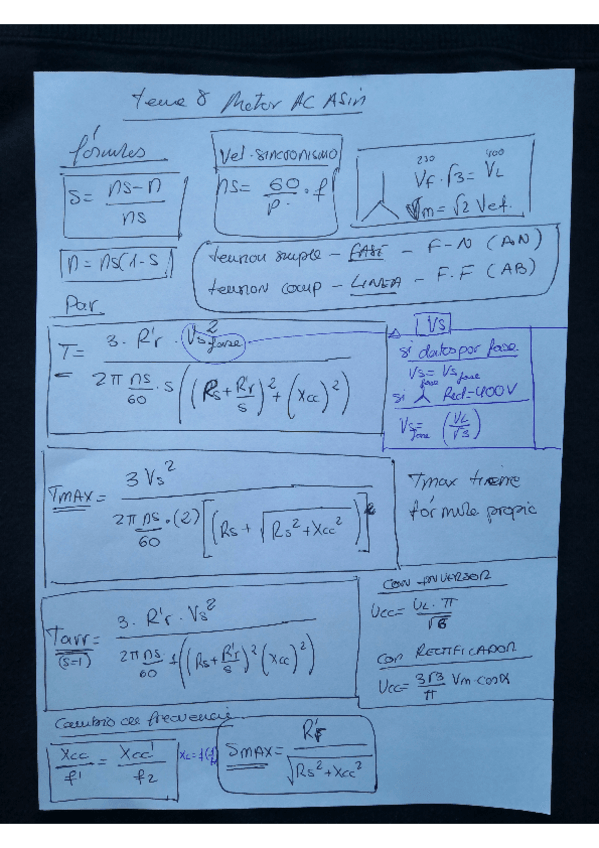 tema 8 Motor AC ASin
fórmules
S = (ns - n) / ns
Vel. SINCRONISMO
ns = 60/P · f
230 400
Vf · √3 = VL
Vm = √2 Vef.
n = ns(1 - S)
tension simple - FASE - F-N (AN)
tension comp - LINEA - F.F (AB)
Par
T = 3 · R'r · Vs fase² / 2π ns/60 · s ((Rs + R'r/s)² + (Xcc)²)
Vs
si datos por fase
Vs fase = Vs fase
si Red = 400V
Vs fase = (VL/√3)
TMAX = 3 Vs² / 2π ns/60 · (2) [(Rs + √(Rs² + Xcc²))]
Tmax tiene
fórmule propie
Tarr = 3 · R'r · Vs² / 2π ns/60 · 1 ((Rs + R'r/s)² (Xcc)²)
(S=1)
CON INVERSOR
Ucc = UL · π / √6
Con RECTIFICADOR
Ucc = 3√3/π Vm · cosα
Cambio de frecuencie
Xcc/f1 = Xcc'/f2
SMAX = R'r / √(Rs² + Xcc²)